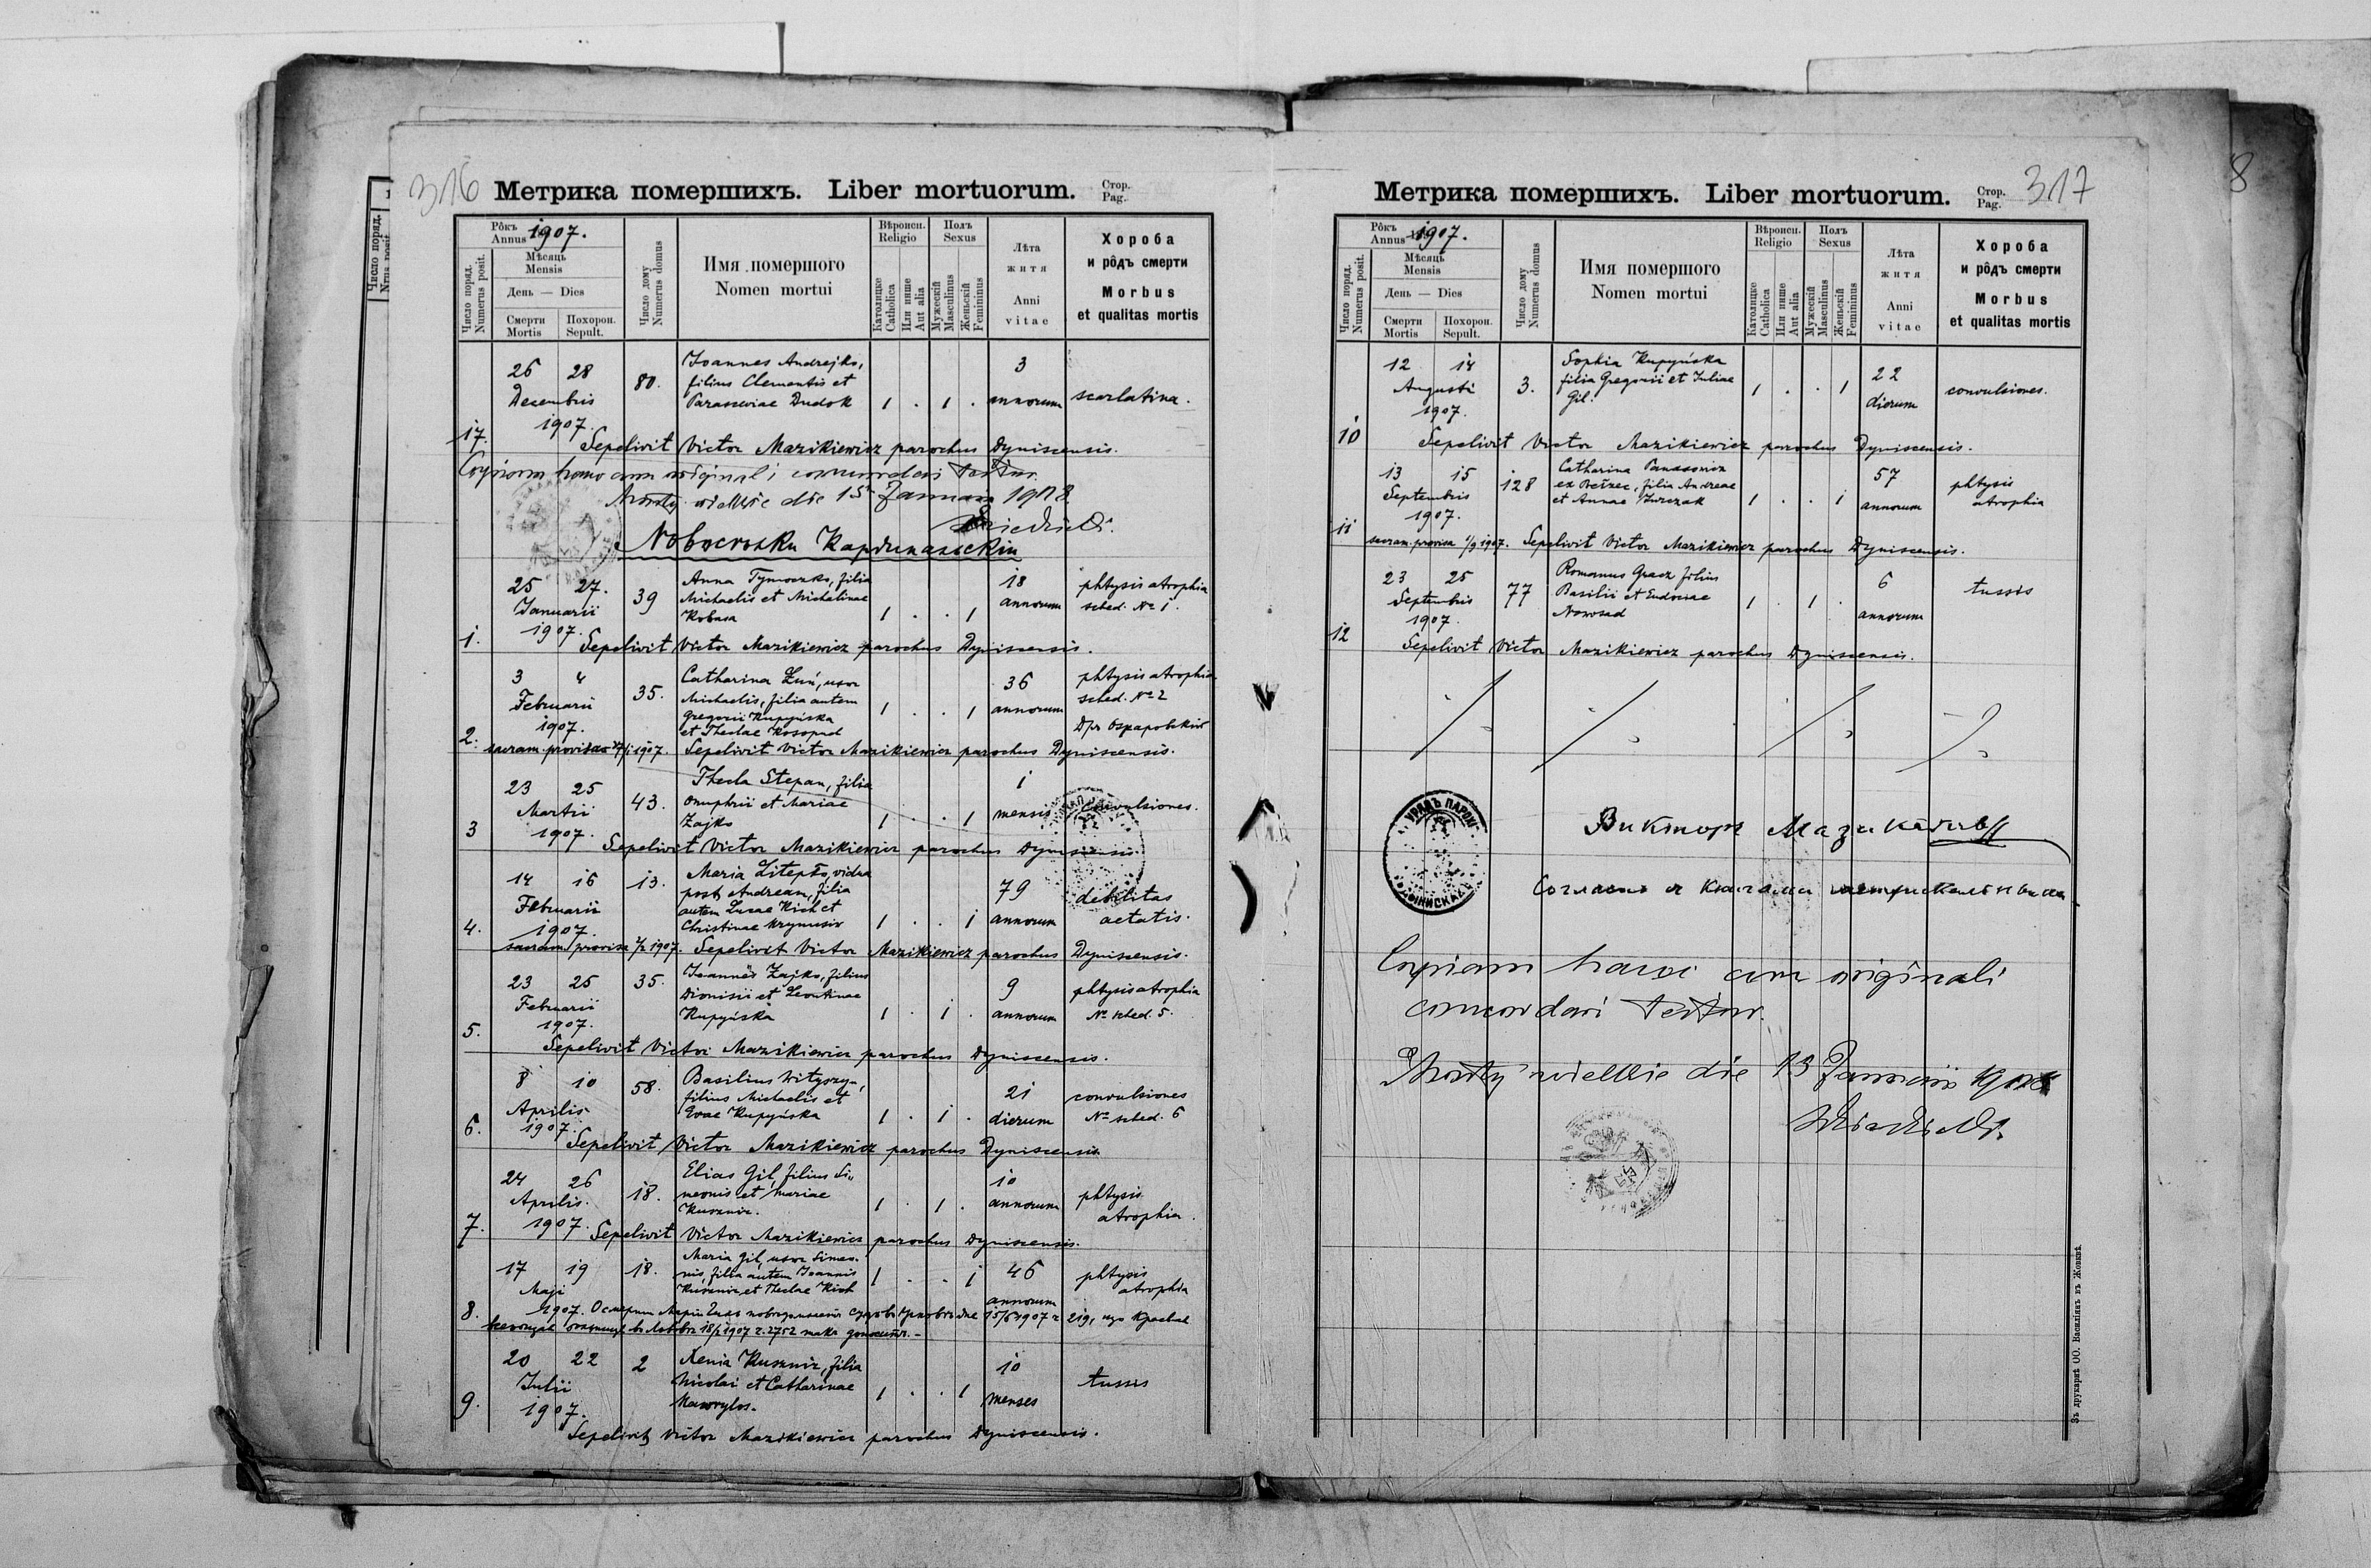 316 Метрика помершихъ. Liber mortuorum. Стор. Pag.
Рôкъ Annus 1907.
Мѣсяць Mensis
День — Dies
Смерти Mortis
Похорон. Sepult.
Число поряд. Numerus posit.
Число дому Numerus domus
Имя помершого Nomen mortui
Вѣроисп. Religio
Католицке Catholica
Или инше Aut alia
Полъ Sexus
Мужескій Masculinus
Женьскій Femininus
Лѣта житя Anni vitae
Хороба и рôдъ смерти Morbus et qualitas mortis
26 28 80. Joannes Andrejko, 3
Decembris filius Clementis et annorum scarlatina.
1907. Parasceviae Dudok 1 . 1 .
17. Sepelivit Victor Mazikiewicz parochus Dyniscensis.
Copiam hanc cum originali concordari testor.
Mosty wielkie die 15 Januarii 1908
Новосѣлки Кардинальскіи
25 27. 39 Anna Tymoczko, filia 18 phtysis atrophia
Januarii Michaelis et Michalinae annorum sched. № 1.
1907. Kobasa 1 . . 1
1. Sepelivit Victor Mazikiewicz parochus Dyniscensis.
3 4 35. Catharina Łuń, uxor 36 phtysis atrophia
Februarii Michaelis, filia autem annorum sched. № 2
1907. Gregorii Kupyńska 1 . . 1
et Theclae Kosopud
2. sacram. provisa 1907. Sepelivit Victor Mazikiewicz parochus Dyniscensis.
23 25 43. Thecla Stepan, filia 1
Martii Onuphrii et Mariae mensis convulsiones.
1907. Zajko 1 . . 1
3 Sepelivit Victor Mazikiewicz parochus Dyniscensis.
14 16 13. Maria Litepło, vidua 79 debilitas
Februarii post Andream, filia annorum aetatis.
1907. autem Lucae Kich et 1 . . 1
Christinae
4. sacram. provisa 1907. Sepelivit Victor Mazikiewicz parochus Dyniscensis.
23 25 35. Joannes Zajko, filius 9 phtysis atrophia
Februarii Dionisii et Leontinae annorum № sched. 5.
1907. Kupyńska 1 . 1 .
5. Sepelivit Victor Mazikiewicz parochus Dyniscensis.
8 10 58. Basilius 21 convulsiones
Aprilis filius Michaelis et dierum № sched. 6
1907. Evae Kupyńska 1 . 1 .
6. Sepelivit Victor Mazikiewicz parochus Dyniscensis
24 26 18. Elias Gil, filius Si„ 10 phtysis
Aprilis. meonis et Mariae annorum atrophia.
1907. Kusznir. 1 . 1 .
7. Sepelivit Victor Mazikiewicz parochus Dyniscensis.
17 19 18. Maria Gil, uxor Simeo- 46 phtysis
Maji nis, filia autem Joannis annorum atrophia
Kusznir et Theclae Kich 1 . . 1
8. 1907. О смерти Маріи 1907
20 22 2 Xenia Kusznir, filia 10 tussis
Julii Nicolai et Catharinae menses
1907. 1 . . 1
9. Sepelivit Victor Mazikiewicz parochus Dyniscensis.
Метрика помершихъ. Liber mortuorum. Стор. Pag. 317
Рôкъ Annus 1907.
Мѣсяць Mensis
День — Dies
Смерти Mortis
Похорон. Sepult.
Число поряд. Numerus posit.
Число дому Numerus domus
Имя помершого Nomen mortui
Вѣроисп. Religio
Католицке Catholica
Или инше Aut alia
Полъ Sexus
Мужескій Masculinus
Женьскій Femininus
Лѣта житя Anni vitae
Хороба и рôдъ смерти Morbus et qualitas mortis
12 14 3. Sophia Kupyńska 22 convulsiones.
Augusti filia Gregorii et Juliae dierum
1907. Gil. 1 . . 1
10 Sepelivit Victor Mazikiewicz parochus Dyniscensis.
13 15 128 Catharina Panasowicz 57 phtysis
Septembris ex Bełzec, filia Andreae annorum atrophia
1907. et Annae Jurczak 1 . . 1
11 sacram. provisa 1/9 1907. Sepelivit Victor Mazikiewicz parochus Dyniscensis.
23 25 77 Romanus Gracz filius 6 tussis
Septembris Basilii et Eudociae annorum
1907. Nowosad 1 . 1 .
12 Sepelivit Victor Mazikiewicz parochus Dyniscensis.
УРЯДЪ ПАРОХ
Викторъ
Согласно з книгами метрикальными
Copiam hanc cum originali
concordari testor.
Mosty wielkie die 15 Januarii 1908
Зъ друкарнѣ ОО. Василіянъ въ Жовквѣ.
8